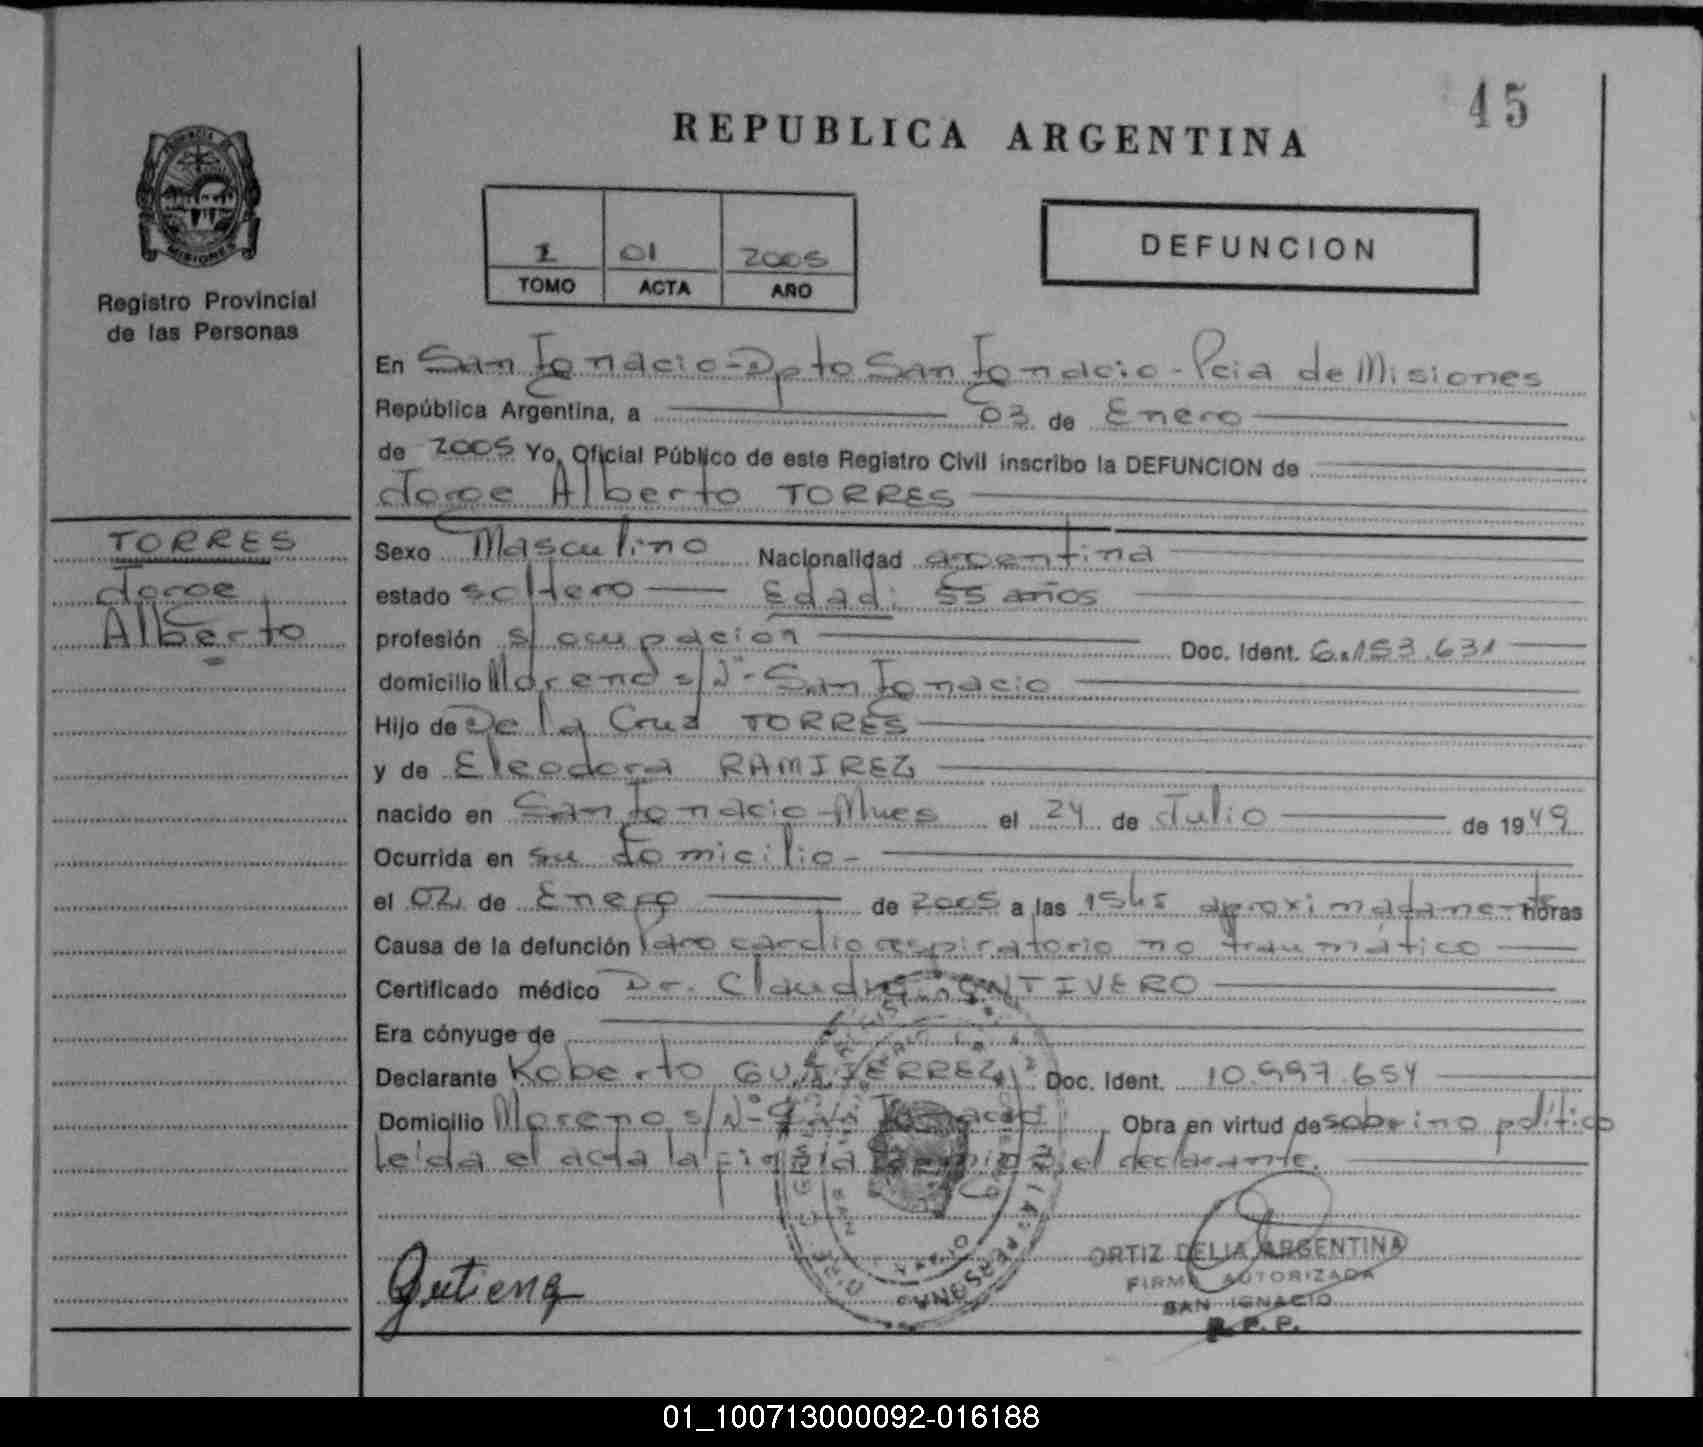 45
REPUBLICA ARGENTINA
PROVINCIA DE
MISIONES
Registro Provincial
de las Personas
1 01 2005
TOMO ACTA AÑO
DEFUNCION
En San Ignacio - Dpto San Ignacio - Pcia de Misiones
República Argentina, a 03 de Enero
de 2005 Yo, Oficial Público de este Registro Civil inscribo la DEFUNCION de
Jorge Alberto TORRES
TORRES
Jorge
Alberto
Sexo Masculino Nacionalidad argentina
estado soltero Edad: 55 años
profesión s/ ocupación Doc. Ident. 6.153.631
domicilio Moreno s/Nº - San Ignacio
Hijo de De la Cruz TORRES
y de Eleodora RAMIREZ
nacido en San Ignacio - Mnes el 24 de Julio de 1949
Ocurrida en su domicilio -
el 02 de Enero de 2005 a las 15hs aproximadamente horas
Causa de la defunción Paro cardio respiratorio no traumático
Certificado médico Dr. Claudio ONTIVERO
Era cónyuge de
Declarante Roberto GUTIERREZ Doc. Ident. 10.997.654
Domicilio Moreno s/Nº - San Ignacio, Obra en virtud de sobrino político
Leída el acta la firma el declarante.
Gutierrez
ORTIZ DELIA ARGENTINA
FIRMA AUTORIZADA
SAN IGNACIO
R.P.P.
01_100713000092-016188